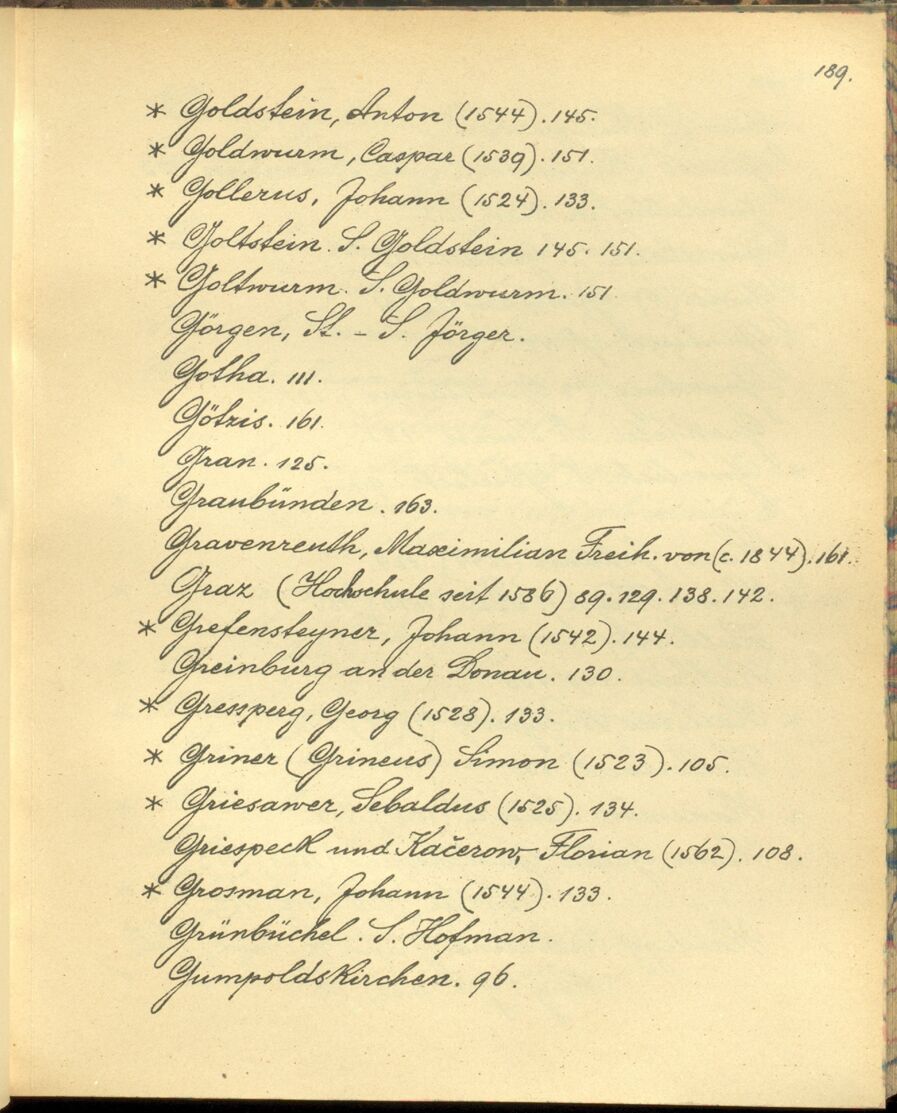 189.
* Goldstein, Anton (1544). 145.
* Goldwurm, Caspar (1539). 151.
* Gollerus, Johann (1524). 133.
* Goltstein. S. Goldstein 145. 151.
* Goltwurm. S. Goldwurm. 151
Görgen, St. - S. Jörger.
Gotha. 111.
Götzis. 161.
Gran. 125.
Graubünden. 163.
Gravenreuth, Maximilian Freih. von (c. 1844). 161.
Graz (Hochschule seit 1586) 89. 129. 138. 142.
* Grefensteyner, Johann (1542). 144.
Greinburg an der Donau. 130.
* Gressperg, Georg (1528). 133.
* Griner (Grineus) Simon (1523). 105.
* Griesawer, Sebaldus (1525). 134.
Griespeck und Kačerow, Florian (1562). 108.
* Grosman, Johann (1544). 133.
Grünbüchel. S. Hofman.
Gumpoldskirchen. 96.